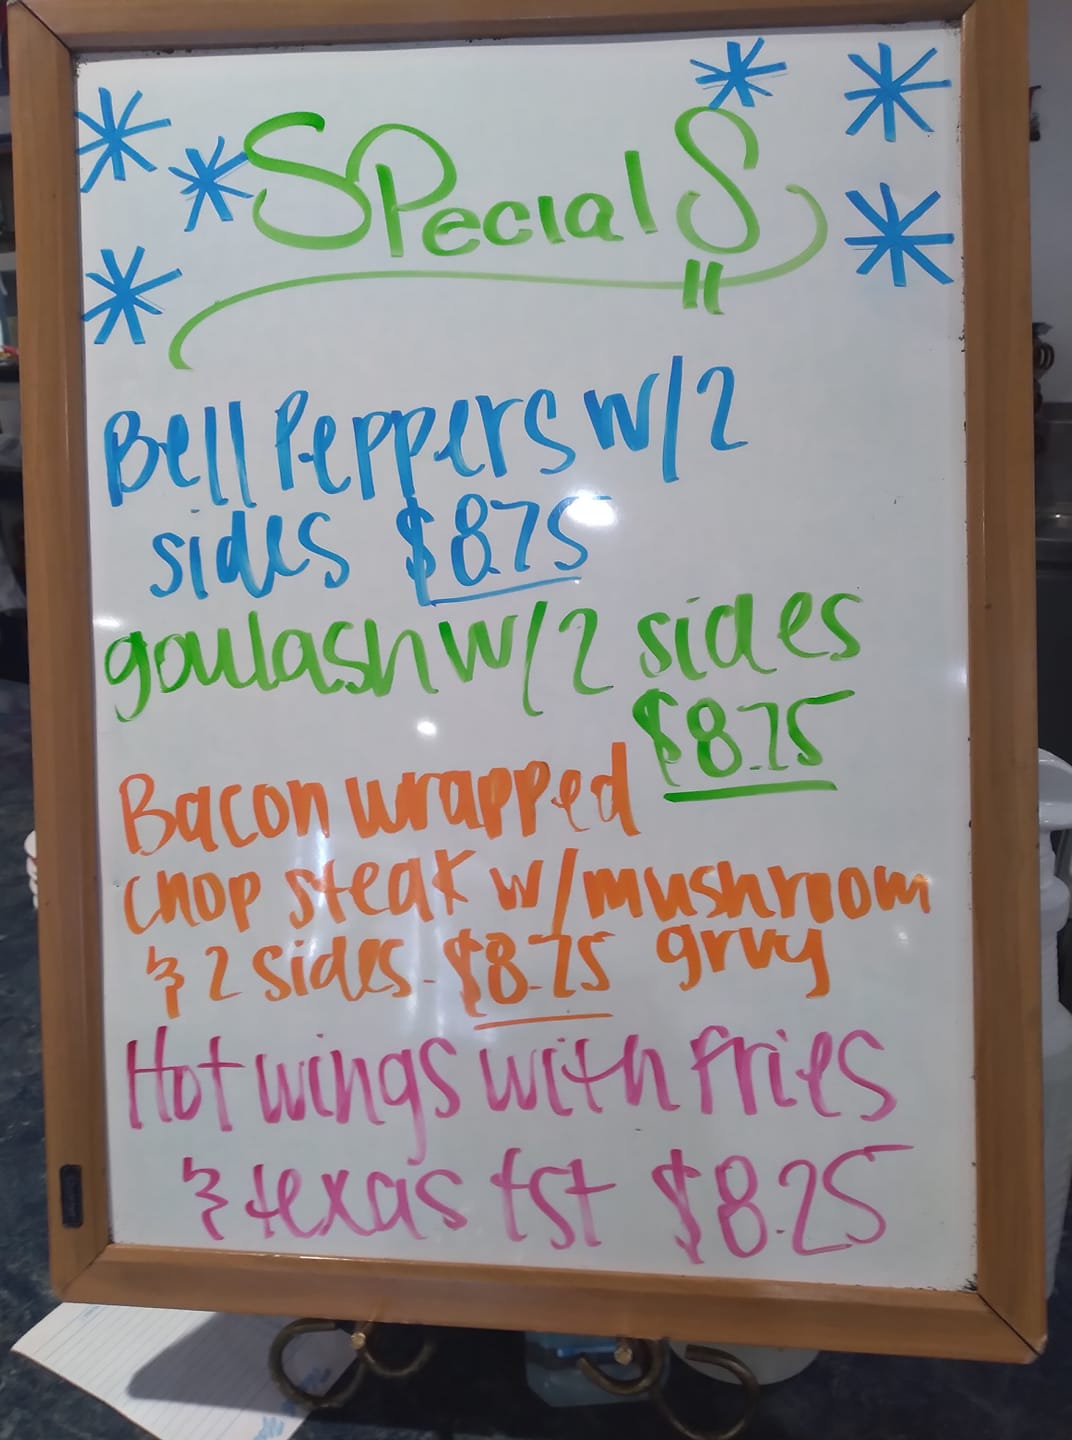 Specials
Bell Peppers w/2
sides $8.75
goulash w/2 sides
$8.75
Bacon wrapped
chop steak w/mushroom
& 2 sides - $8.75 grvy
Hot wings with fries
& texas tst $8.25